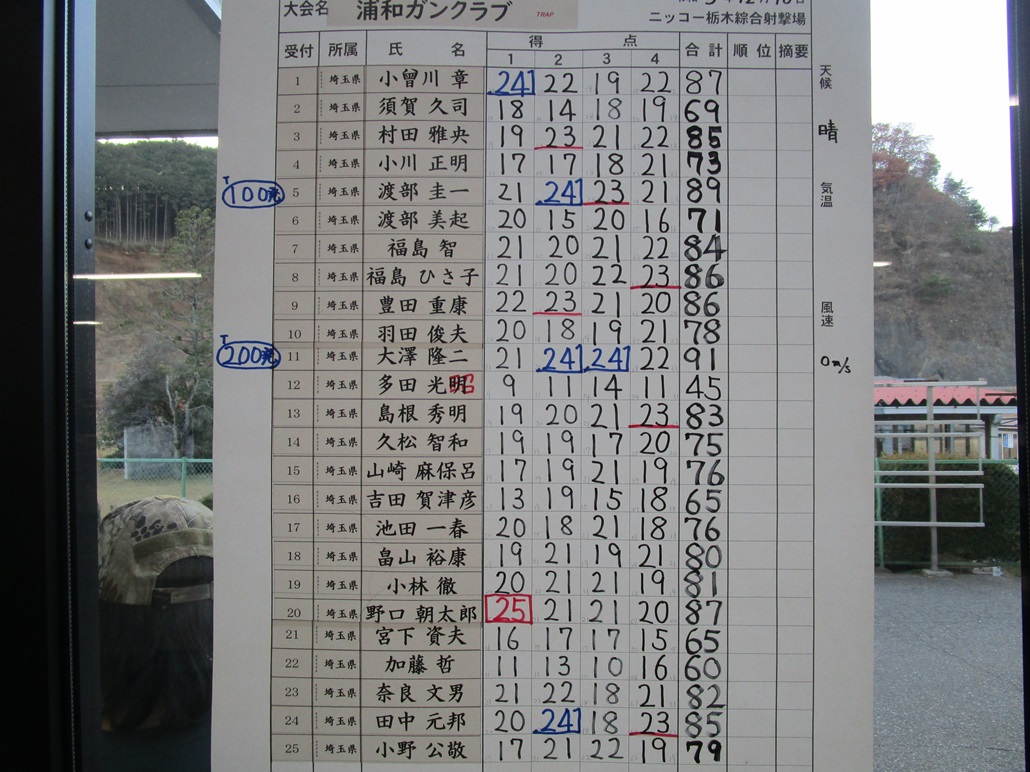 大会名 浦和ガンクラブ TRAP
ニッコー栃木綜合射撃場
受付 所属 氏 名 得 点 合計 順位 摘要
1 2 3 4
1 埼玉県 小曾川 章 24 22 19 22 87
2 埼玉県 須賀 久司 18 14 18 19 69
3 埼玉県 村田 雅央 19 23 21 22 85
4 埼玉県 小川 正明 17 17 18 21 73
T 100発 5 埼玉県 渡部 圭一 21 24 23 21 89
6 埼玉県 渡部 美起 20 15 20 16 71
7 埼玉県 福島 智 21 20 21 22 84
8 埼玉県 福島 ひさ子 21 20 22 23 86
9 埼玉県 豊田 重康 22 23 21 20 86
10 埼玉県 羽田 俊夫 20 18 19 21 78
T 200発 11 埼玉県 大澤 隆二 21 24 24 22 91
12 埼玉県 多田 光明 9 11 14 11 45
13 埼玉県 島根 秀明 19 20 21 23 83
14 埼玉県 久松 智和 19 19 17 20 75
15 埼玉県 山崎 麻保呂 17 19 21 19 76
16 埼玉県 吉田 賀津彦 13 19 15 18 65
17 埼玉県 池田 一春 20 18 21 18 76
18 埼玉県 畠山 裕康 19 21 19 21 80
19 埼玉県 小林 徹 20 21 21 19 81
20 埼玉県 野口 朝太郎 25 21 21 20 87
21 埼玉県 宮下 資夫 16 17 17 15 65
22 埼玉県 加藤 哲 11 13 10 16 60
23 埼玉県 奈良 文男 21 22 18 21 82
24 埼玉県 田中 元邦 20 24 18 23 85
25 埼玉県 小野 公敬 17 21 22 19 79
天候
晴
気温
風速
0m/s